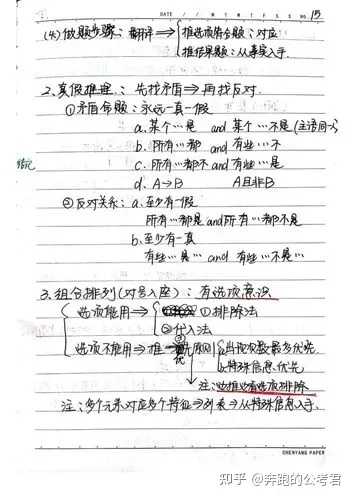 DATE No. 15
(4) 做题步骤：翻译⇒ 推选项符合题：对应
推结果题：从事实入手.
2. 真假推理：先找矛盾⇒再找反对.
①矛盾命题：永远一真一假
a. 某个…是 and 某个…不是(主语同一)
b. 所有…都 and 有些…不
c. 所有…都不 and 有些…是
d. A→B A且非B
②反对关系：a. 至少有一假
所有…都是 and 所有…都不是
b. 至少有一真
有些…是 and 有些…不是…
3. 组合排列(对号入座)：有选项意识
选项能用⇒ ①排除法
②代入法
选项不能用⇒推 原则 a. 出现次数最多优先
b. 特殊信息优先
注：边推边看选项排除
注：多个元素对应多个特征⇒列表⇒从特殊信息入手.
CHENYANG PAPER
知乎 @奔跑的公考君